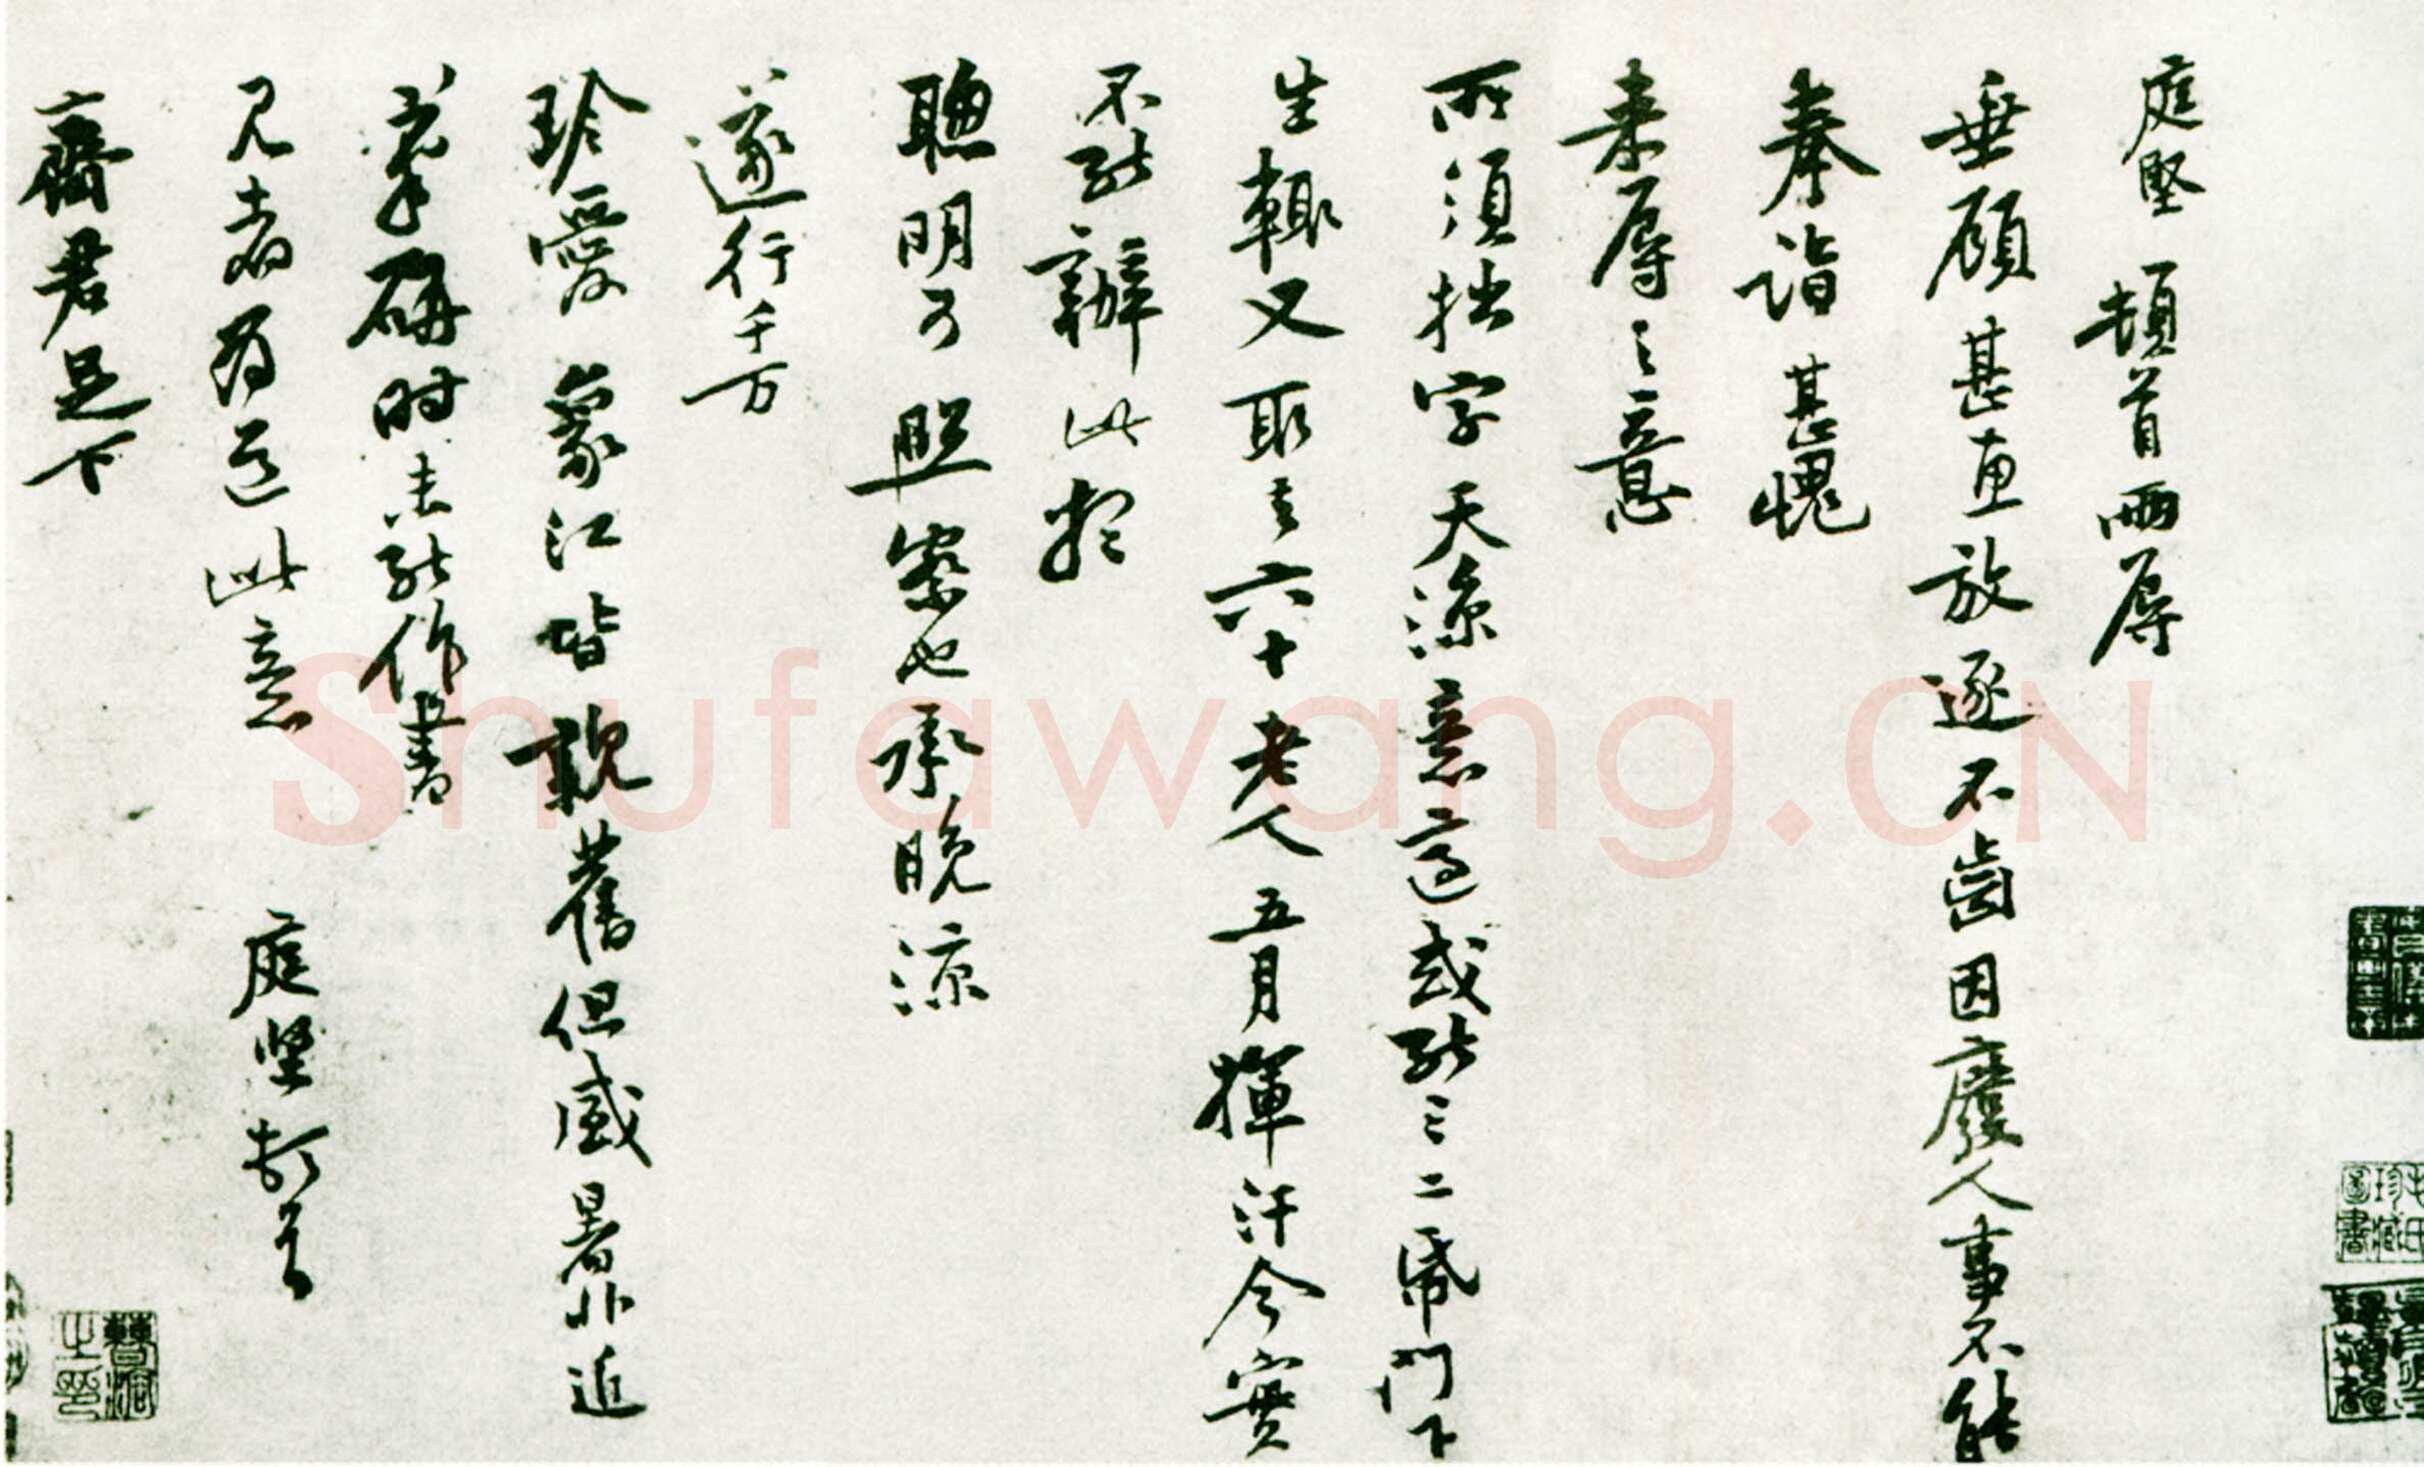 庭堅頓首兩辱
垂顧甚惠放逐不齒因廢人事不能
奉詣甚愧
来辱之意
所須拙字天凉意適或能三二紙門下
生輒又取去六十老人五月揮汗今實
不能辦此想
聰明可照察也承晚凉
遂行千万
珍愛象江皆親舊但盛暑非近
筆硯時未能作書
見者爲道此意 庭堅頓首
齋君足下
Shufawang.CN